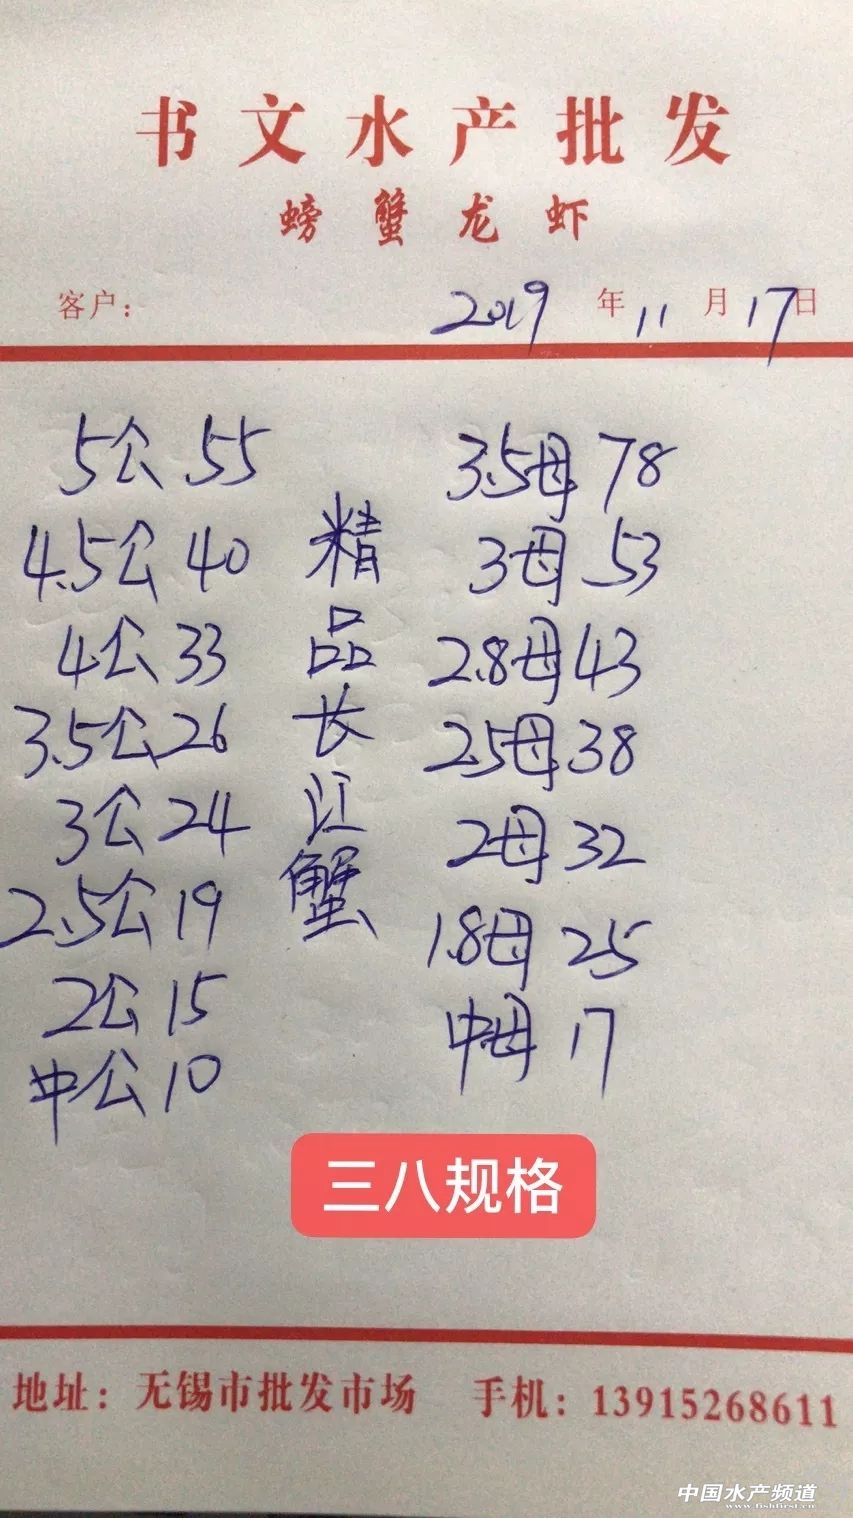 书文水产批发
螃蟹龙虾
客户： 2019年11月17日
5公 55
4.5公 40
4公 33
3.5公 26
3公 24
2.5公 19
2公 15
中公 10
精品长江蟹
3.5母 78
3母 53
2.8母 43
2.5母 38
2母 32
1.8母 25
中母 17
三八规格
地址：无锡市批发市场 手机：13915268611
中国水产频道
www.fishfirst.cn